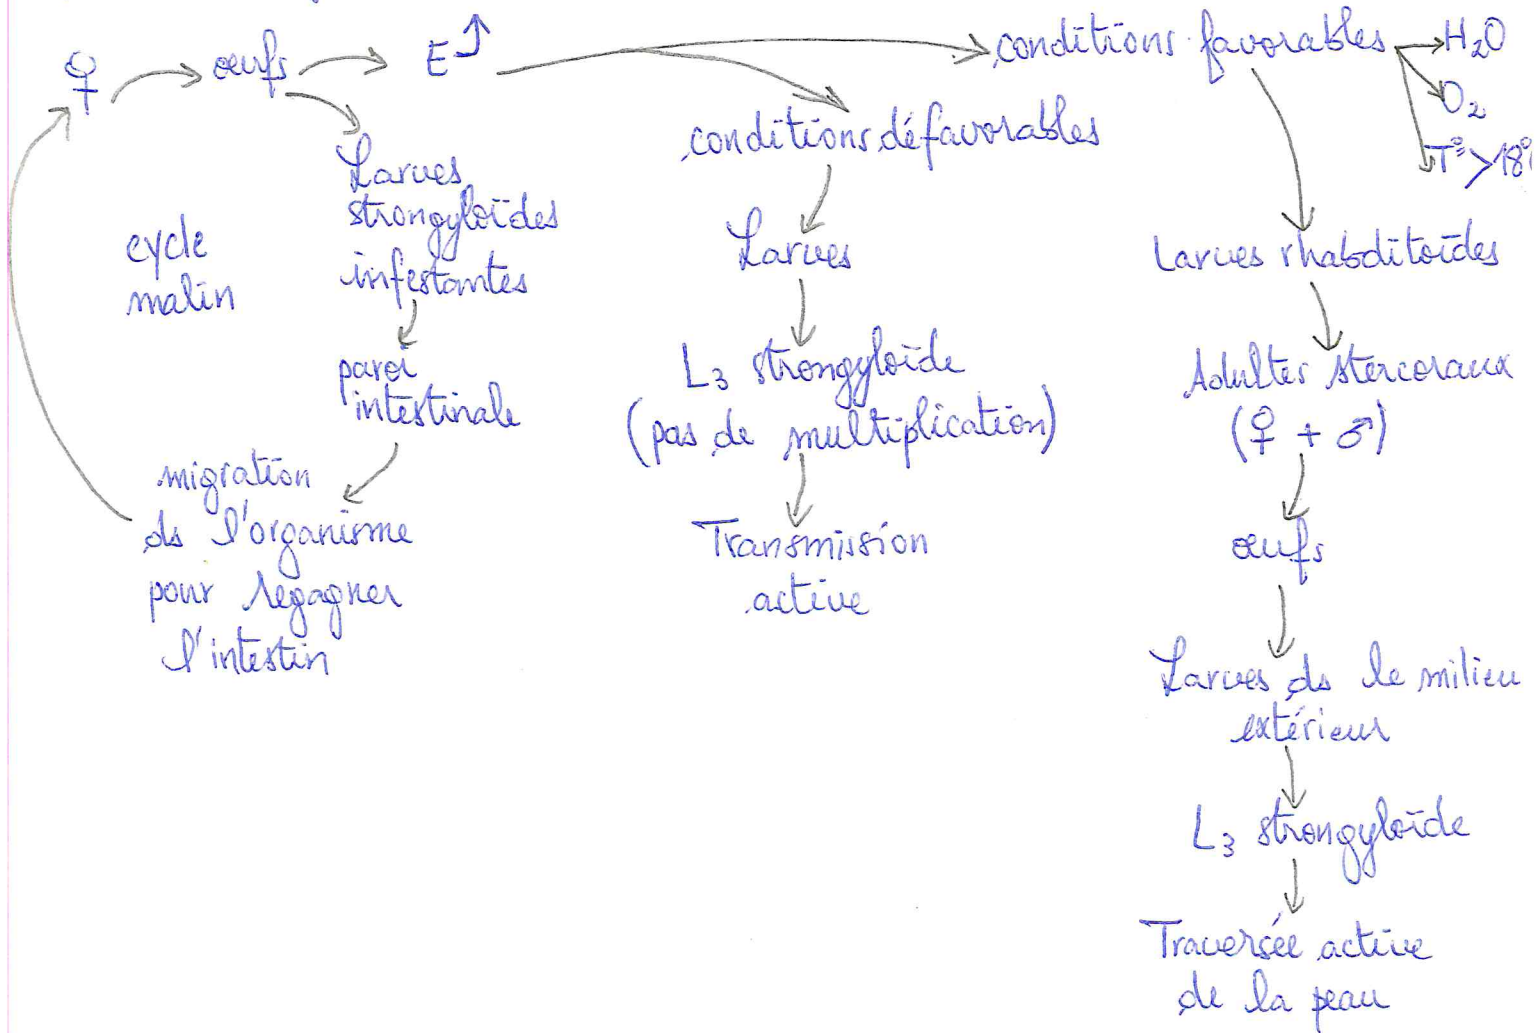 ♀ œufs E conditions favorables H₂O
O₂
T° > 18°
conditions défavorables
Larves
strongyloïdes
infestantes
cycle
malin
paroi
intestinale
migration
ds l'organisme
pour regagner
l'intestin
Larves
L₃ strongyloïde
(pas de multiplication)
Transmission
active
Larves rhabditoïdes
Adultes stercoraux
(♀ + ♂)
œufs
Larves ds le milieu
extérieur
L₃ strongyloïde
Traversée active
de la peau